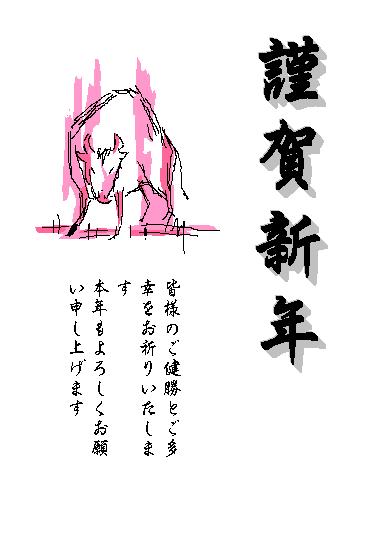 謹賀新年
皆様のご健勝とご多
幸をお祈りいたしま
す
本年もよろしくお願
い申し上げます